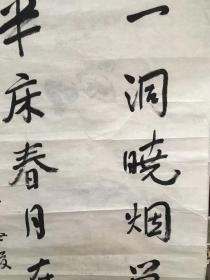 一洞晓烟
半床春月在